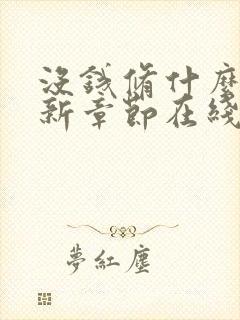 没钱修什么
新章节在线
夢紅塵